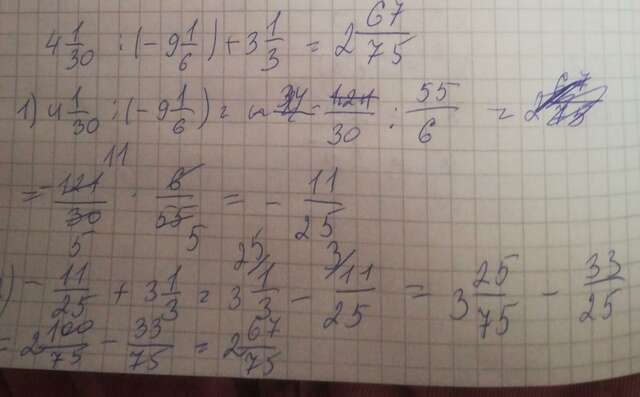 4 1/30 : (-9 1/6) + 3 1/3 = 2 67/75
1) 4 1/30 : (-9 1/6) = - 121/30 : 55/6 =
= - 121/30 · 6/55 = - 11/25
11 5 5
) - 11/25 + 3 1/3 = 3 1/3 - 11/25 = 3 25/75 - 33/25
25 3
= 2 100/75 - 33/75 = 2 67/75